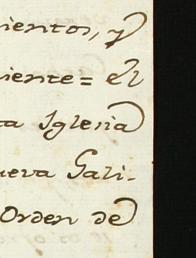 ientos, y
iente = el
ta Iglesia
ueva Gali-
Orden de